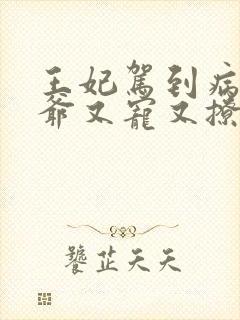 王妃駕到病
爺又寵又撩
饕芷天天